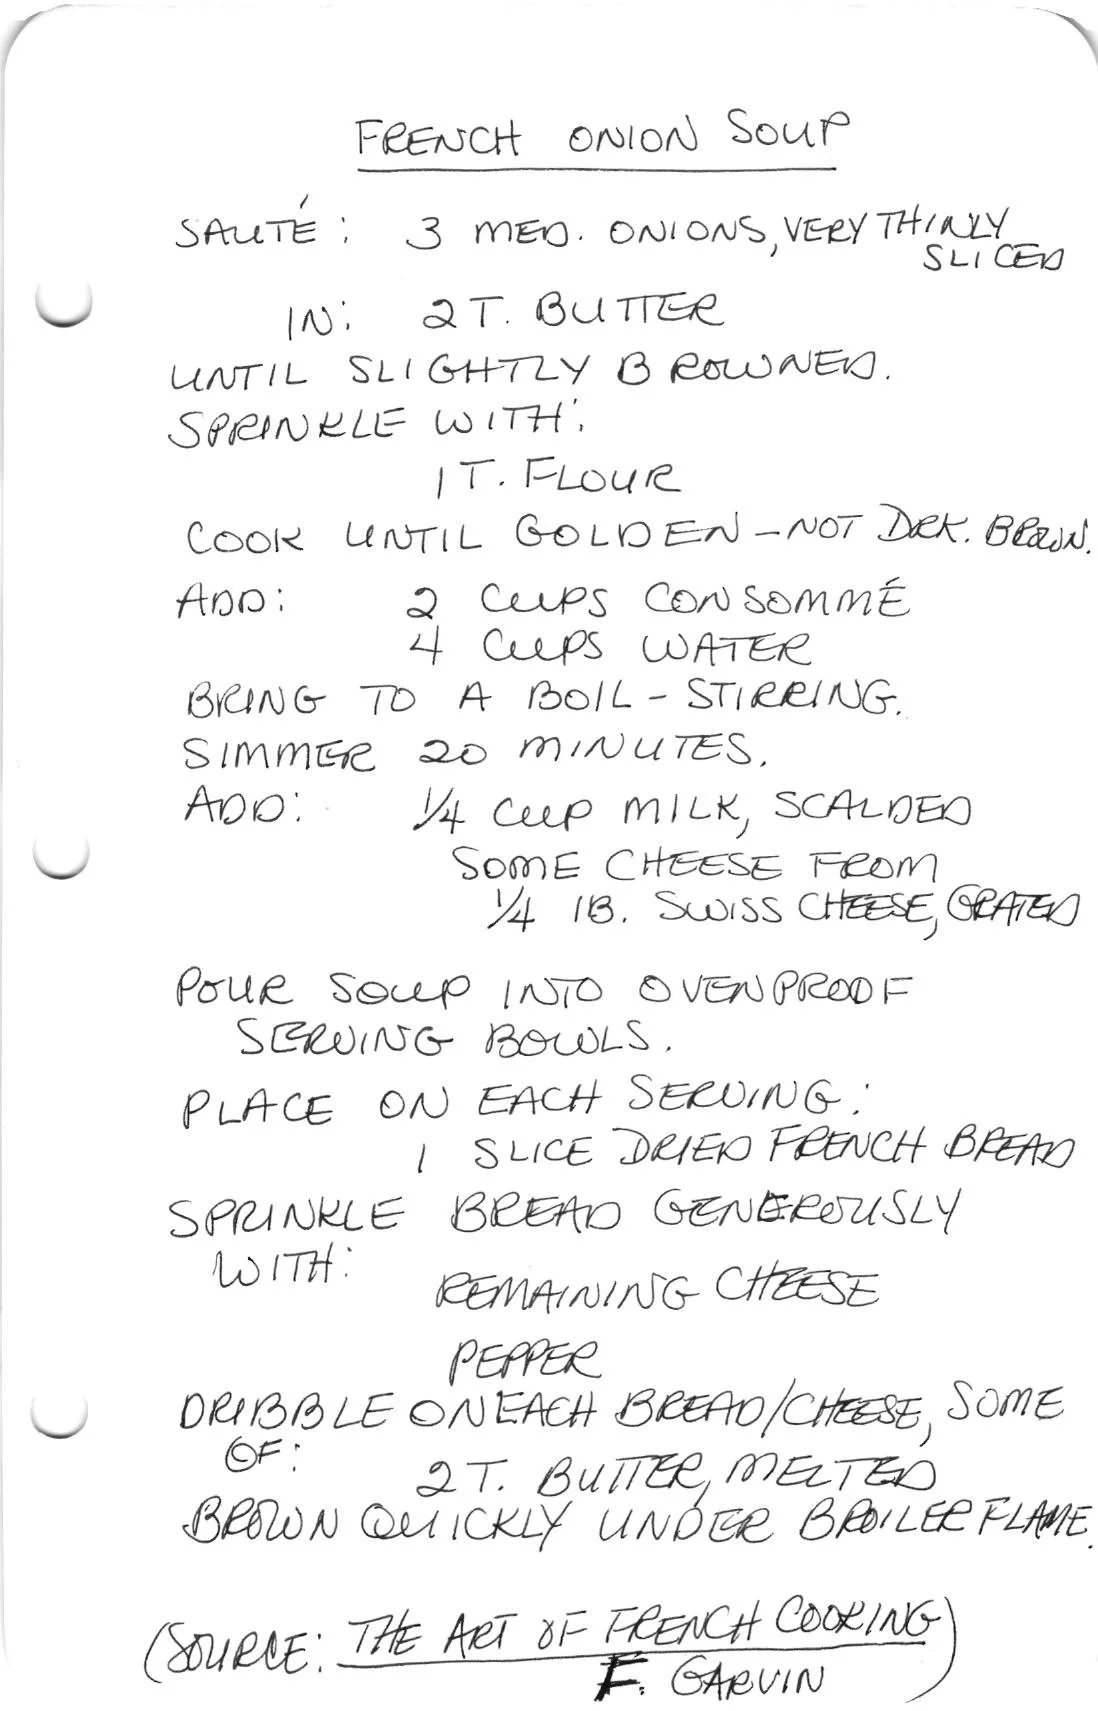 FRENCH ONION SOUP
SAUTÉ: 3 MED. ONIONS, VERY THINLY
SLICED
IN: 2 T. BUTTER
UNTIL SLIGHTLY BROWNED.
SPRINKLE WITH:
1 T. FLOUR
COOK UNTIL GOLDEN – NOT DRK. BROWN.
ADD: 2 CUPS CONSOMMÉ
4 CUPS WATER
BRING TO A BOIL – STIRRING.
SIMMER 20 MINUTES.
ADD: 1/4 CUP MILK, SCALDED
SOME CHEESE FROM
1/4 lB. SWISS CHEESE, GRATED
POUR SOUP INTO OVENPROOF
SERVING BOWLS.
PLACE ON EACH SERVING:
1 SLICE DRIED FRENCH BREAD
SPRINKLE BREAD GENEROUSLY
WITH:
REMAINING CHEESE
PEPPER
DRIBBLE ON EACH BREAD/CHEESE, SOME
OF:
2 T. BUTTER, MELTED
BROWN QUICKLY UNDER BROILER FLAME.
(SOURCE: THE ART OF FRENCH COOKING)
F. GARVIN